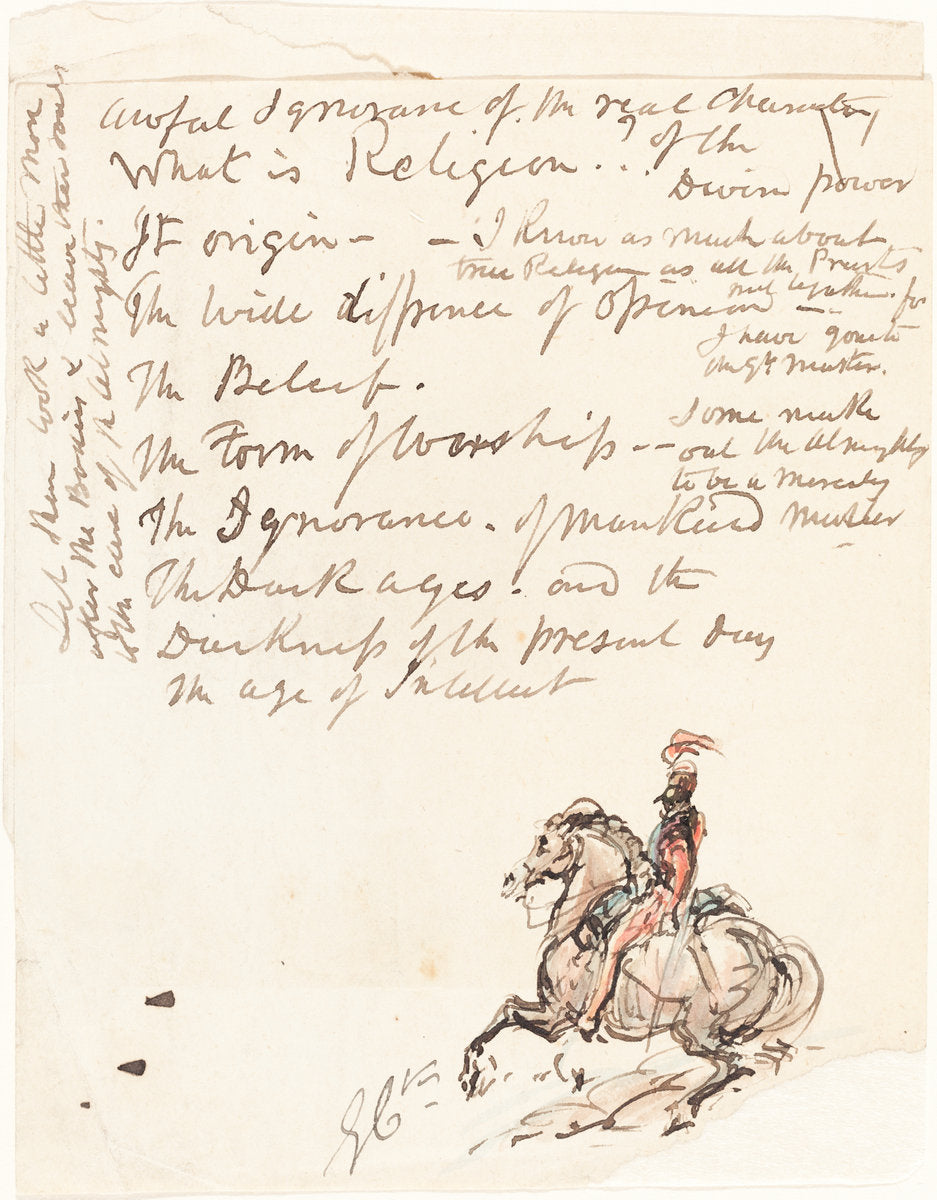 awful Ignorance of the real Character
What is Religion..? of the
Divine power
It origin – – I know as much about
true Religion as all the Priests
put together. for
The wide difference of Opinion –
I have gone to
the Gt Master.
The Beleif.
The Form of Worship –– Some make
out the Almighty
to be a Merciless
The Ignorance. of Mankind Master
The Dark ages. and the
Darkness of the present day
The age of Intellect
Let them look a little more
after the Bodies & leave the souls
to the care of the Almighty.